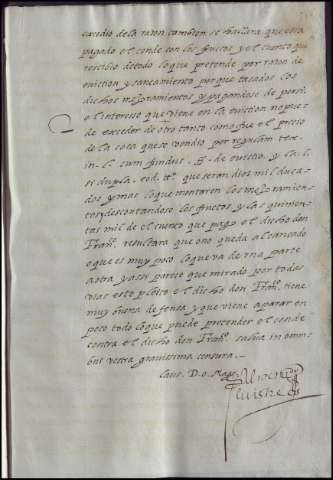 excedio de la razon tambien se hallara que esta
pagado el conde con los fructos y el cuento que
rescibio de todo lo que pretende por razon de
eviction y saneamiento porque tasados los
dichos mejoramientos y pagandose de
o l interesso que viene en la eviction no puede
de exceder de otro tanto como fue el precio
de la cosa que se vendio por regulam tex.
in. l. cum fundus. ff. de evictio. y la. l.
si dupla. eod. tt.º que seran dos mil duca
dos y mas lo que montaren los mejoramien
tos y descontandose los fructos y las quinien
tas mil de el cuento que pago el dicho don
Fran.co resultara que o no queda alcançado
o que es muy poco lo que va de una parte
a otra y assi parece que mirado por todas
vias este pleito el dicho don Fran.co tiene
muy buena defensa y que viene a parar en
poco todo lo que puede pretender el conde
contra el dicho don Fran.co salva in omni
bus vestra gravissima censura.
Laus. D. o. Mag.